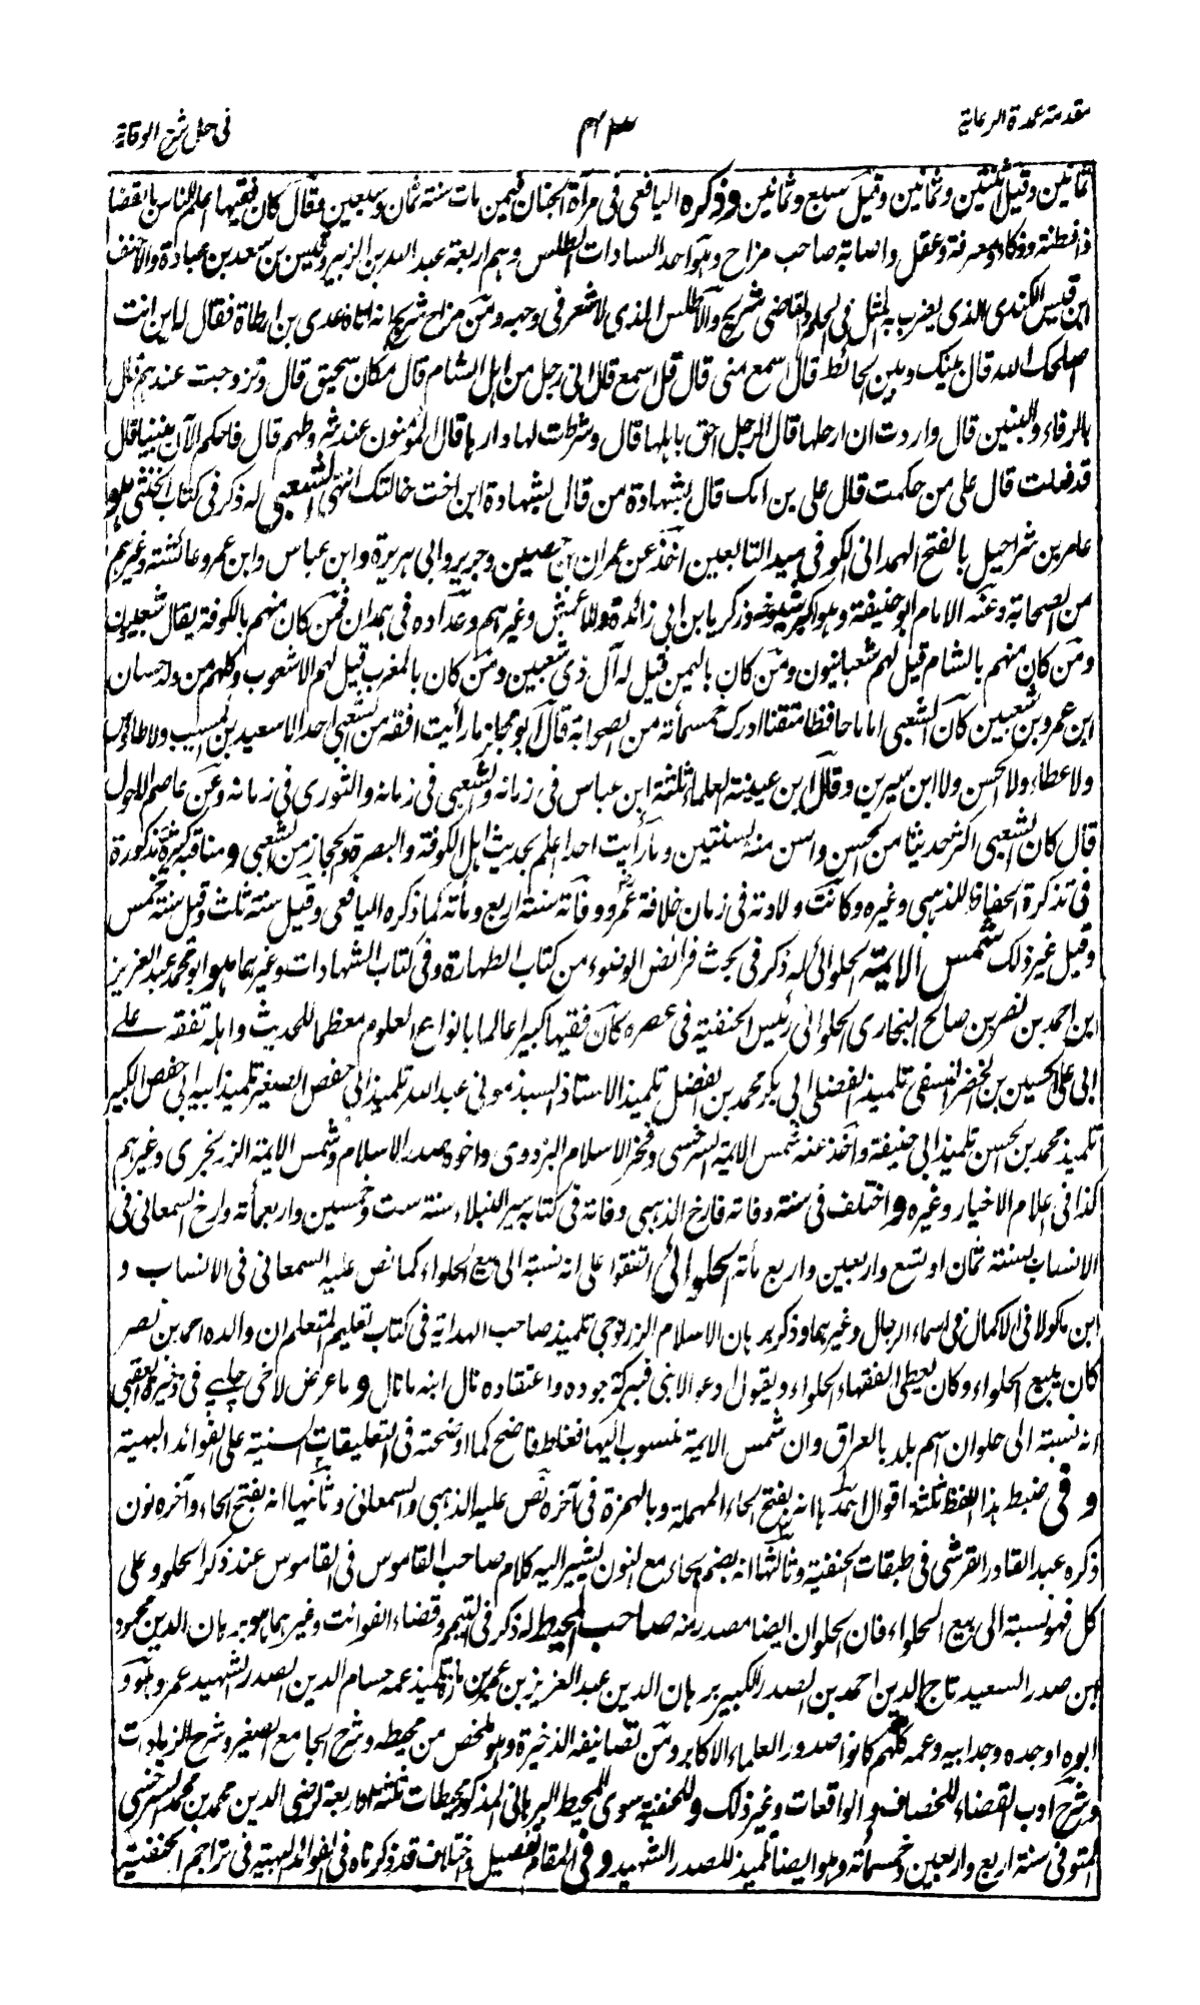 مقدمة عمدة الرعاية
٤٣
فى حل شرح الوقاية
ثمانين وقيل ثنتين وثمانين وقيل سبع وثمانين وذكره اليافعى فى مرآة الجنان فيمن مات سنة ثمان وسبعين وقال كان فقيها اعلم الناس بالقضا
ذا فطنة وذكاء ومعرفة وعقل واصابة صاحب مزاح وهو احد السادات الطلس وهم اربعة عبد الله بن الزبير وقيس بن سعد بن عبادة والاحنف
ابن قيس الكندى الذى يضرب به المثل فى الحلم والقاضى شريح والاطلس الذى لا شعر فى وجهه ومن مزاح شريح انه اتاه عدى بن ارطاة فقال له اين انت
اصلحك الله قال بينك وبين الحائط قال اسمع منى قال قل اسمع قال انى رجل من اهل الشام قال مكان سحيق قال وتزوجت عندهم قال
بالرفاء والبنين قال واردت ان ارحلها قال الرجل احق باهلها قال وشرطت لها دارها قال المؤمنون عند شروطهم قال فاحكم الآن بيننا قال
قد فعلت قال على من حكمت قال على بن امك قال بشهادة من قال بشهادة ابن اخت خالتك انتهى الشعبى له ذكر فى كتاب الخنثى هو
عامر بن شراحيل بالفتح الهمدانى الكوفى سيد التابعين اخذ عن عمران بن حصين وجرير وابى هريرة وابن عباس وابن عمر وعائشة وغيرهم
من الصحابة وعنه الامام ابو حنيفة وهو اكبر شيوخه وزكريا بن ابى زائدة والاعمش وغيرهم وعداده فى همدان فمن كان منهم بالكوفة يقال شعبيون
ومن كان منهم بالشام قيل لهم شعبانيون ومن كان باليمن قيل له آل ذى شعبين ومن كان بالمغرب قيل لهم الاشعوب وكلهم من ولد حسان
ابن عمرو بن شعبين كان الشعبى اماما حافظا متقنا ادرك خمسمأة من الصحابة قال ابو مجلز ما رأيت افقه من الشعبى احدا لا سعيد بن المسيب ولا طاؤس
ولا عطاء ولا الحسن ولا ابن سيرين وقال ابن عيينة العلماء ثلثة ابن عباس فى زمانه والشعبى فى زمانه والثورى فى زمانه وعن عاصم الاحول
قال كان الشعبى اكثر حديثا من الحسن واسن منه بسنتين وما رأيت احدا اعلم بحديث اهل الكوفة والبصرة والحجاز من الشعبى ومناقبه كثيرة مذكورة
فى تذكرة الحفاظ للذهبى وغيره وكانت ولادته فى زمان خلافة عمر ووفاته سنة اربع ومأة كما ذكره اليافعى وقيل سنة ثلث وقيل سنة خمس
وقيل غير ذلك شمس الايمة الحلوائى له ذكر فى بحث فرائض الوضوء من كتاب الطهارة وفى كتاب الشهادات وغيرهما هو ابو محمد عبد العزيز
ابن احمد بن نصر بن صالح البخارى الحلوائى رئيس الحنفية فى عصره كان فقيها كبيرا عالما بانواع العلوم معظما للحديث واهله تفقه على
ابى على الحسين بن الخضر النسفى تلميذ الفضلى ابى بكر محمد بن الفضل تلميذ الاستاذ السبذمونى عبد الله تلميذ ابى حفص الصغير تلميذ ابيه ابى حفص الكبير
تلميذ محمد بن الحسن تلميذ ابى حنيفة واخذ عنه شمس الايمة السرخسى وفخر الاسلام البزدوى واخوه صدر الاسلام وشمس الايمة الزرنجرى وغيرهم
كذا فى اعلام الاخيار وغيره واختلف فى سنة وفاته فارخ الذهبى وفاته فى كتابه سير النبلاء سنة ست وخمسين واربعمأة وارخ السمعانى فى
الانساب بسنة ثمان او تسع واربعين واربع مأة الحلوائى اتفقوا على انه نسبة الى بيع الحلواء كما نص عليه السمعانى فى الانساب و
ابن ماكولا فى الاكمال فى اسماء الرجال وغيرهما وذكر برهان الاسلام الزرنوجى تلميذ صاحب الهداية فى كتاب تعليم المتعلم ان والده احمد بن نصر
كان يبيع الحلواء وكان يعطى الفقهاء الحلواء ويقول ادعو لابنى فببركة جوده واعتقاده نال ابنه ما نال وما عرض لاخى چلپى فى ذخيرة العقبى
انه نسبة الى حلوان اسم بلد بالعراق وان شمس الايمة منسوب اليها فغلط فاضح كما اوضحته فى التعليقات السنية على الفوائد البهية
وفى ضبط هذا اللفظ ثلثة اقوال احدها انه بفتح الحاء المهملة وبالهمزة فى آخره نص عليه الذهبى والسمعانى وثانيها انه بفتح الحاء وآخره نون
ذكره عبد القادر القرشى فى طبقات الحنفية وثالثها انه بضم الحاء مع النون يشير اليه كلام صاحب القاموس فى القاموس عند ذكر الحلو وعلى
كل فهو نسبة الى بيع الحلواء فان الحلوان ايضا مصدر منه صاحب المحيط له ذكر فى التيمم وقضاء الفوائت وغيرهما هو برهان الدين محمود
ابن صدر السعيد تاج الدين احمد بن الصدر الكبير برهان الدين عبد العزيز بن عمر بن مازه تلميذ عمه حسام الدين الصدر الشهيد عمر وهو و
ابوه وجده وجد ابيه وعمه كلهم كانوا صدور العلماء الاكابر ومن تصانيفه الذخيرة وهو ملخص من محيطه وشرح الجامع الصغير وشرح الزيادات
وشرح ادب القضاء للخصاف والواقعات وغير ذلك وللحنفية سوى المحيط البرهانى المذكور محيطات ثلثة او اربعة لرضى الدين محمد بن محمد السرخسى
المتوفى سنة اربع واربعين وخمسمأة وهو ايضا تلميذ للصدر الشهيد وفى المقام تفصيل واختلاف قد ذكرناه فى الفوائد البهية فى تراجم الحنفية